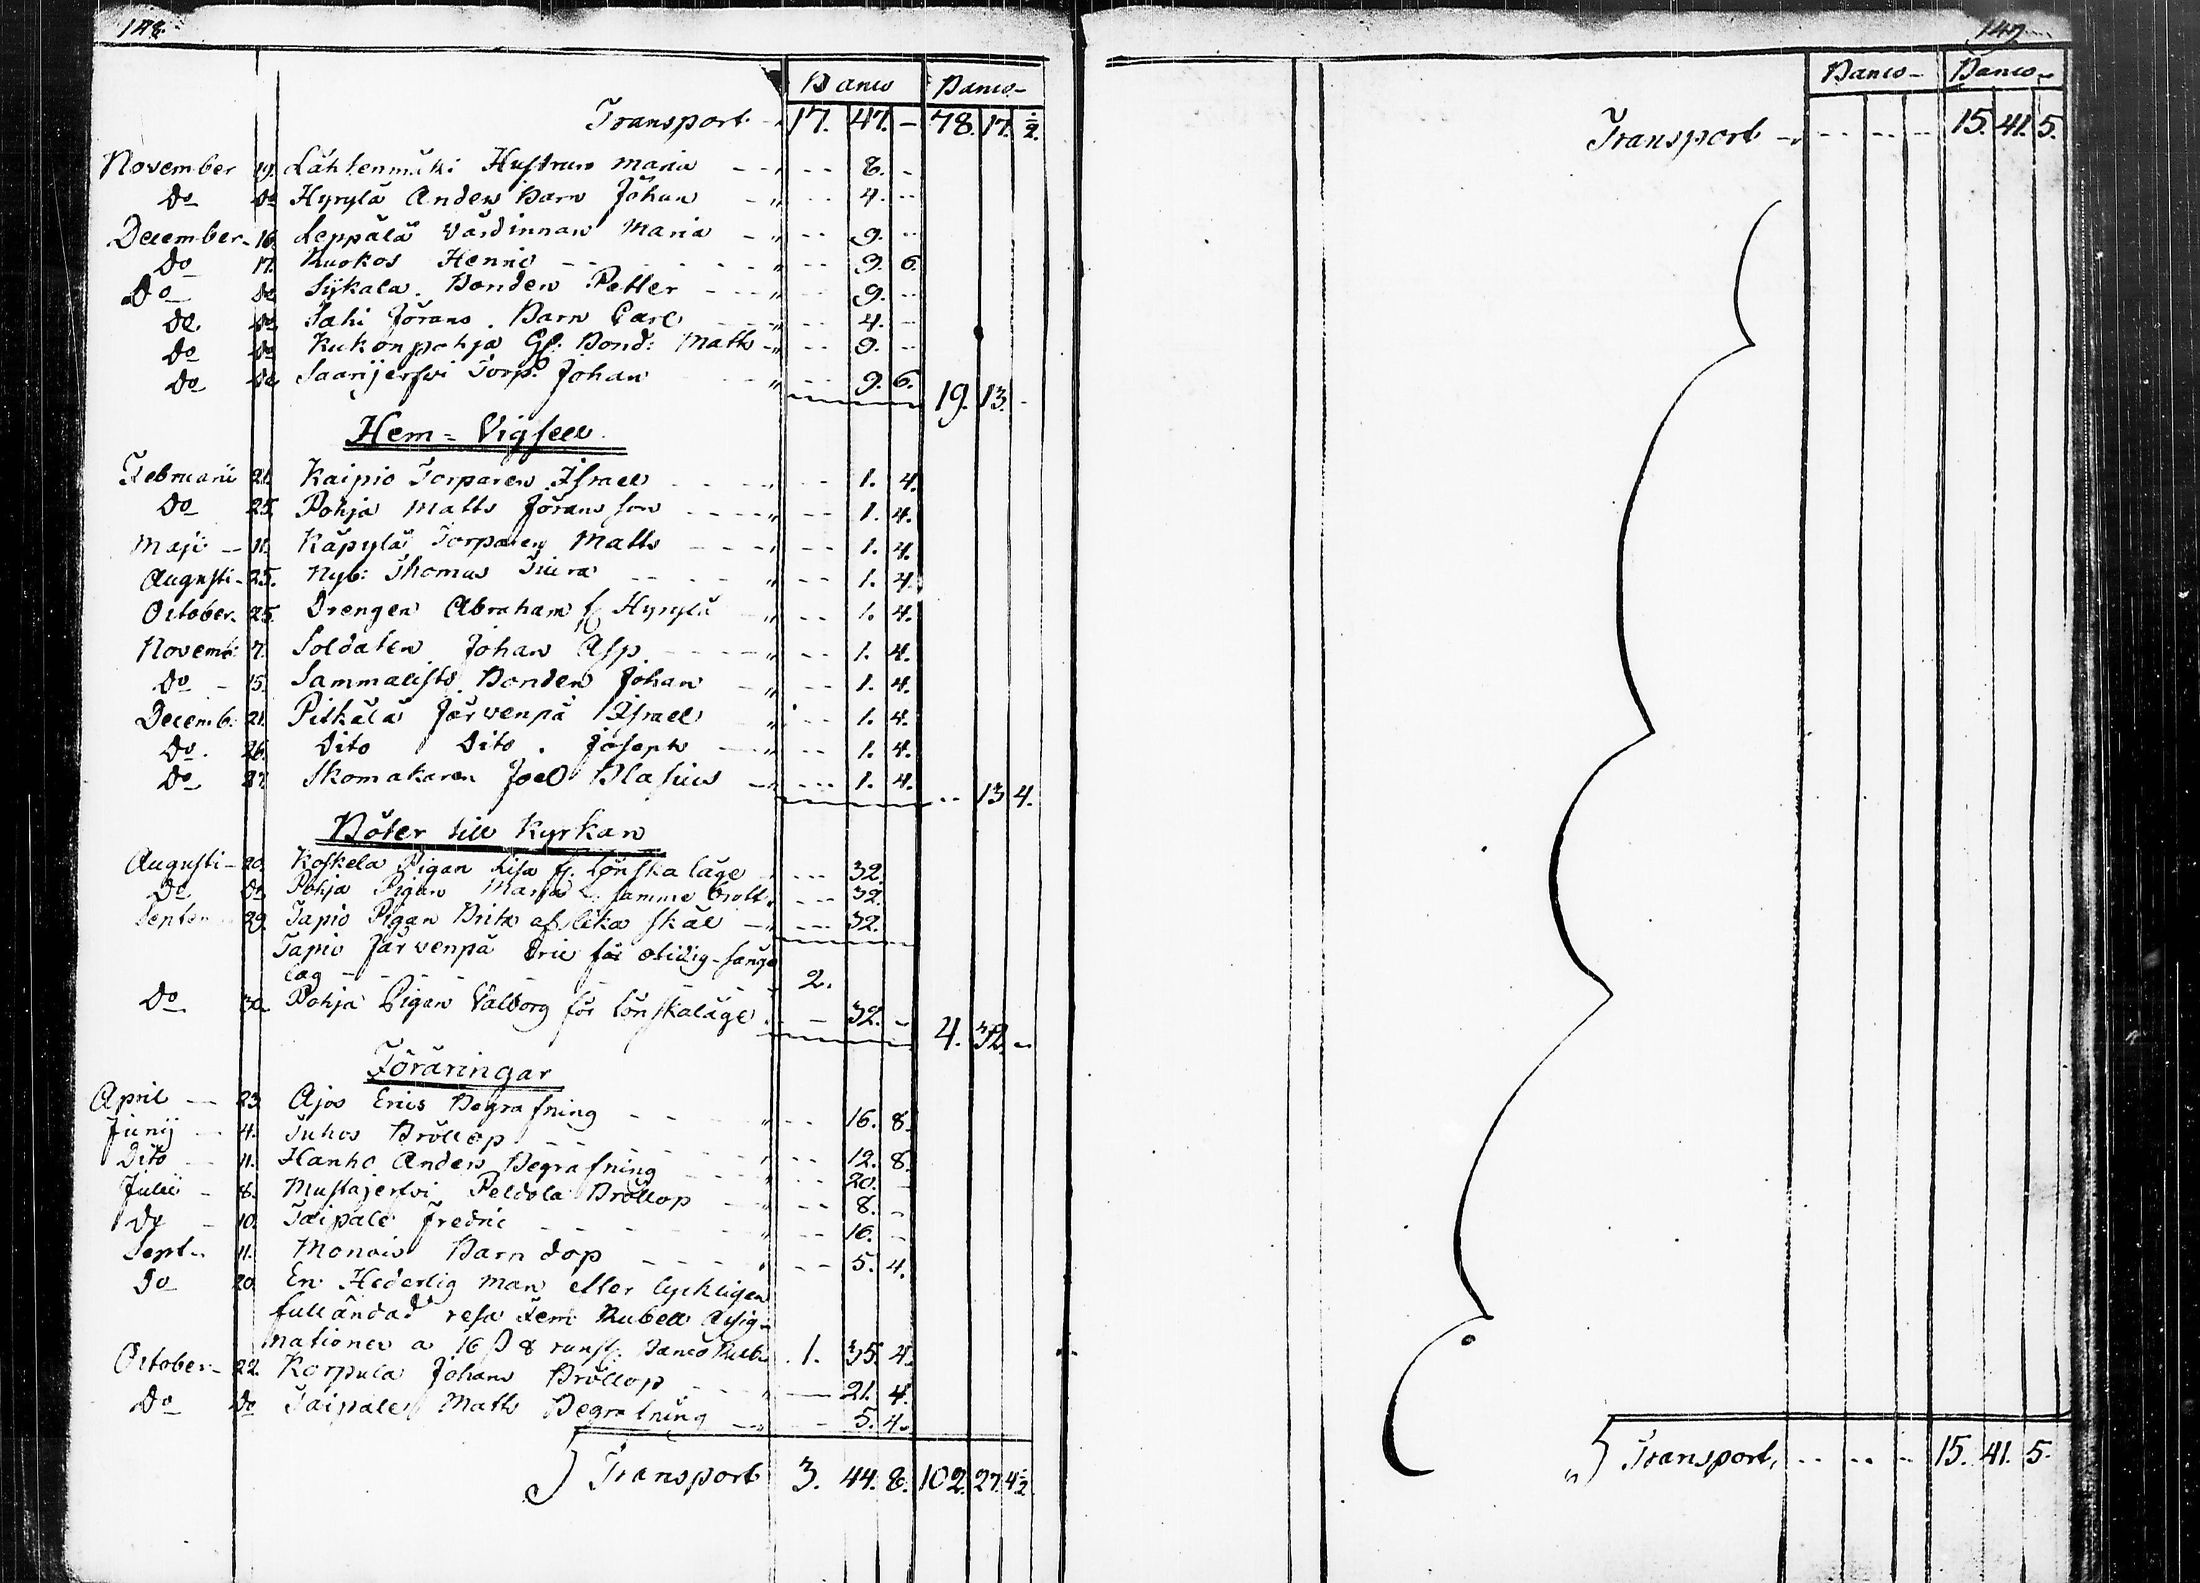 148.
Banco Banco
Transport - 17. 47. - 78. 17. ½
November 19. Lähtenmäki Hustrun Maria - - 8. -
Do Do Hyrylä Anders Barn Johan - - 4. -
December 16. Leppälä Värdinnan Maria - - 9. -
Do 17. Ruokos Henric - - 9. 6.
Do Do Sijkala Bonden Petter - - 9. -
Do Do Jahi Jörans Barn Carl - - 4. -
Do Do Kukonpohja Gl. Bond: Matts - - 9. -
Do Do Saarijerfvi Torp. Johan - - 9. 6. 19. 13. -
Hem-Vigsell
Februarii 21. Kaipio Torparen Israel - - 1. 4.
Do 25. Pohja Matts Jöransson - - 1. 4.
Maji - 11. Käpylä Torparen Matts - - 1. 4.
Augusti - 25. Nyb: Thomas Tiura - - 1. 4.
October. 25. Drengen Abraham f. Hyrylä - - 1. 4.
Novemb: 7. Soldaten Johan Asp - - 1. 4.
Do - 15. Sammalisto Bonden Johan - - 1. 4.
Decemb: 21. Pitkälä Järvenpä Israel - - 1. 4.
Do. 26. Dito Dito. Joseph - - 1. 4.
Do 27. Skomakaren Joel Blasius - - 1. 4. - 13 4.
Böter till Kyrkan
Augusti - 20. Koskela Pigan Lisa för Lönskaläge - - 32.
Do Do Pohja Pigan Maria samma brott - - 32.
Septem 29. Tapio Pigan Brita af lika skäl - - 32.
Tapio Järvenpä Eric för otidig sänge
lag - - 2.
Do 30. Pohja Pigan Valborg för Lönskaläge - - 32. - 4. 32. -
Föräringar
April - 23. Ajos Erics Begrafning - - 16. 8.
Junij - 4. Juhos Bröllop - - 12. 8.
Dito - 11. Hanho Anders Begrafning - - 20. -
Julii - 8. Mustajerfvi Peldola Bröllop - - 8. -
Do - 10. Taipale Fredric - - 16. -
Sept. 11. Monois Barndop - - 5. 4.
Do 20. En Hederlig man efter lyckligen
fulländad resa Fem Rubell Assig-
nationer a 16 ß 8 runst. Banco Rubl. 1. 35. 4.
October - 22. Korpula Johans Bröllop - - 21. 4.
Do Do Taipale Matts Begrafning - - 5. 4.
Transport 3. 44. 8. 102. 27. 4½
149.
Banco - Banco -
Transport - - 15. 41. 5.
Transport, - - 15. 41. 5.